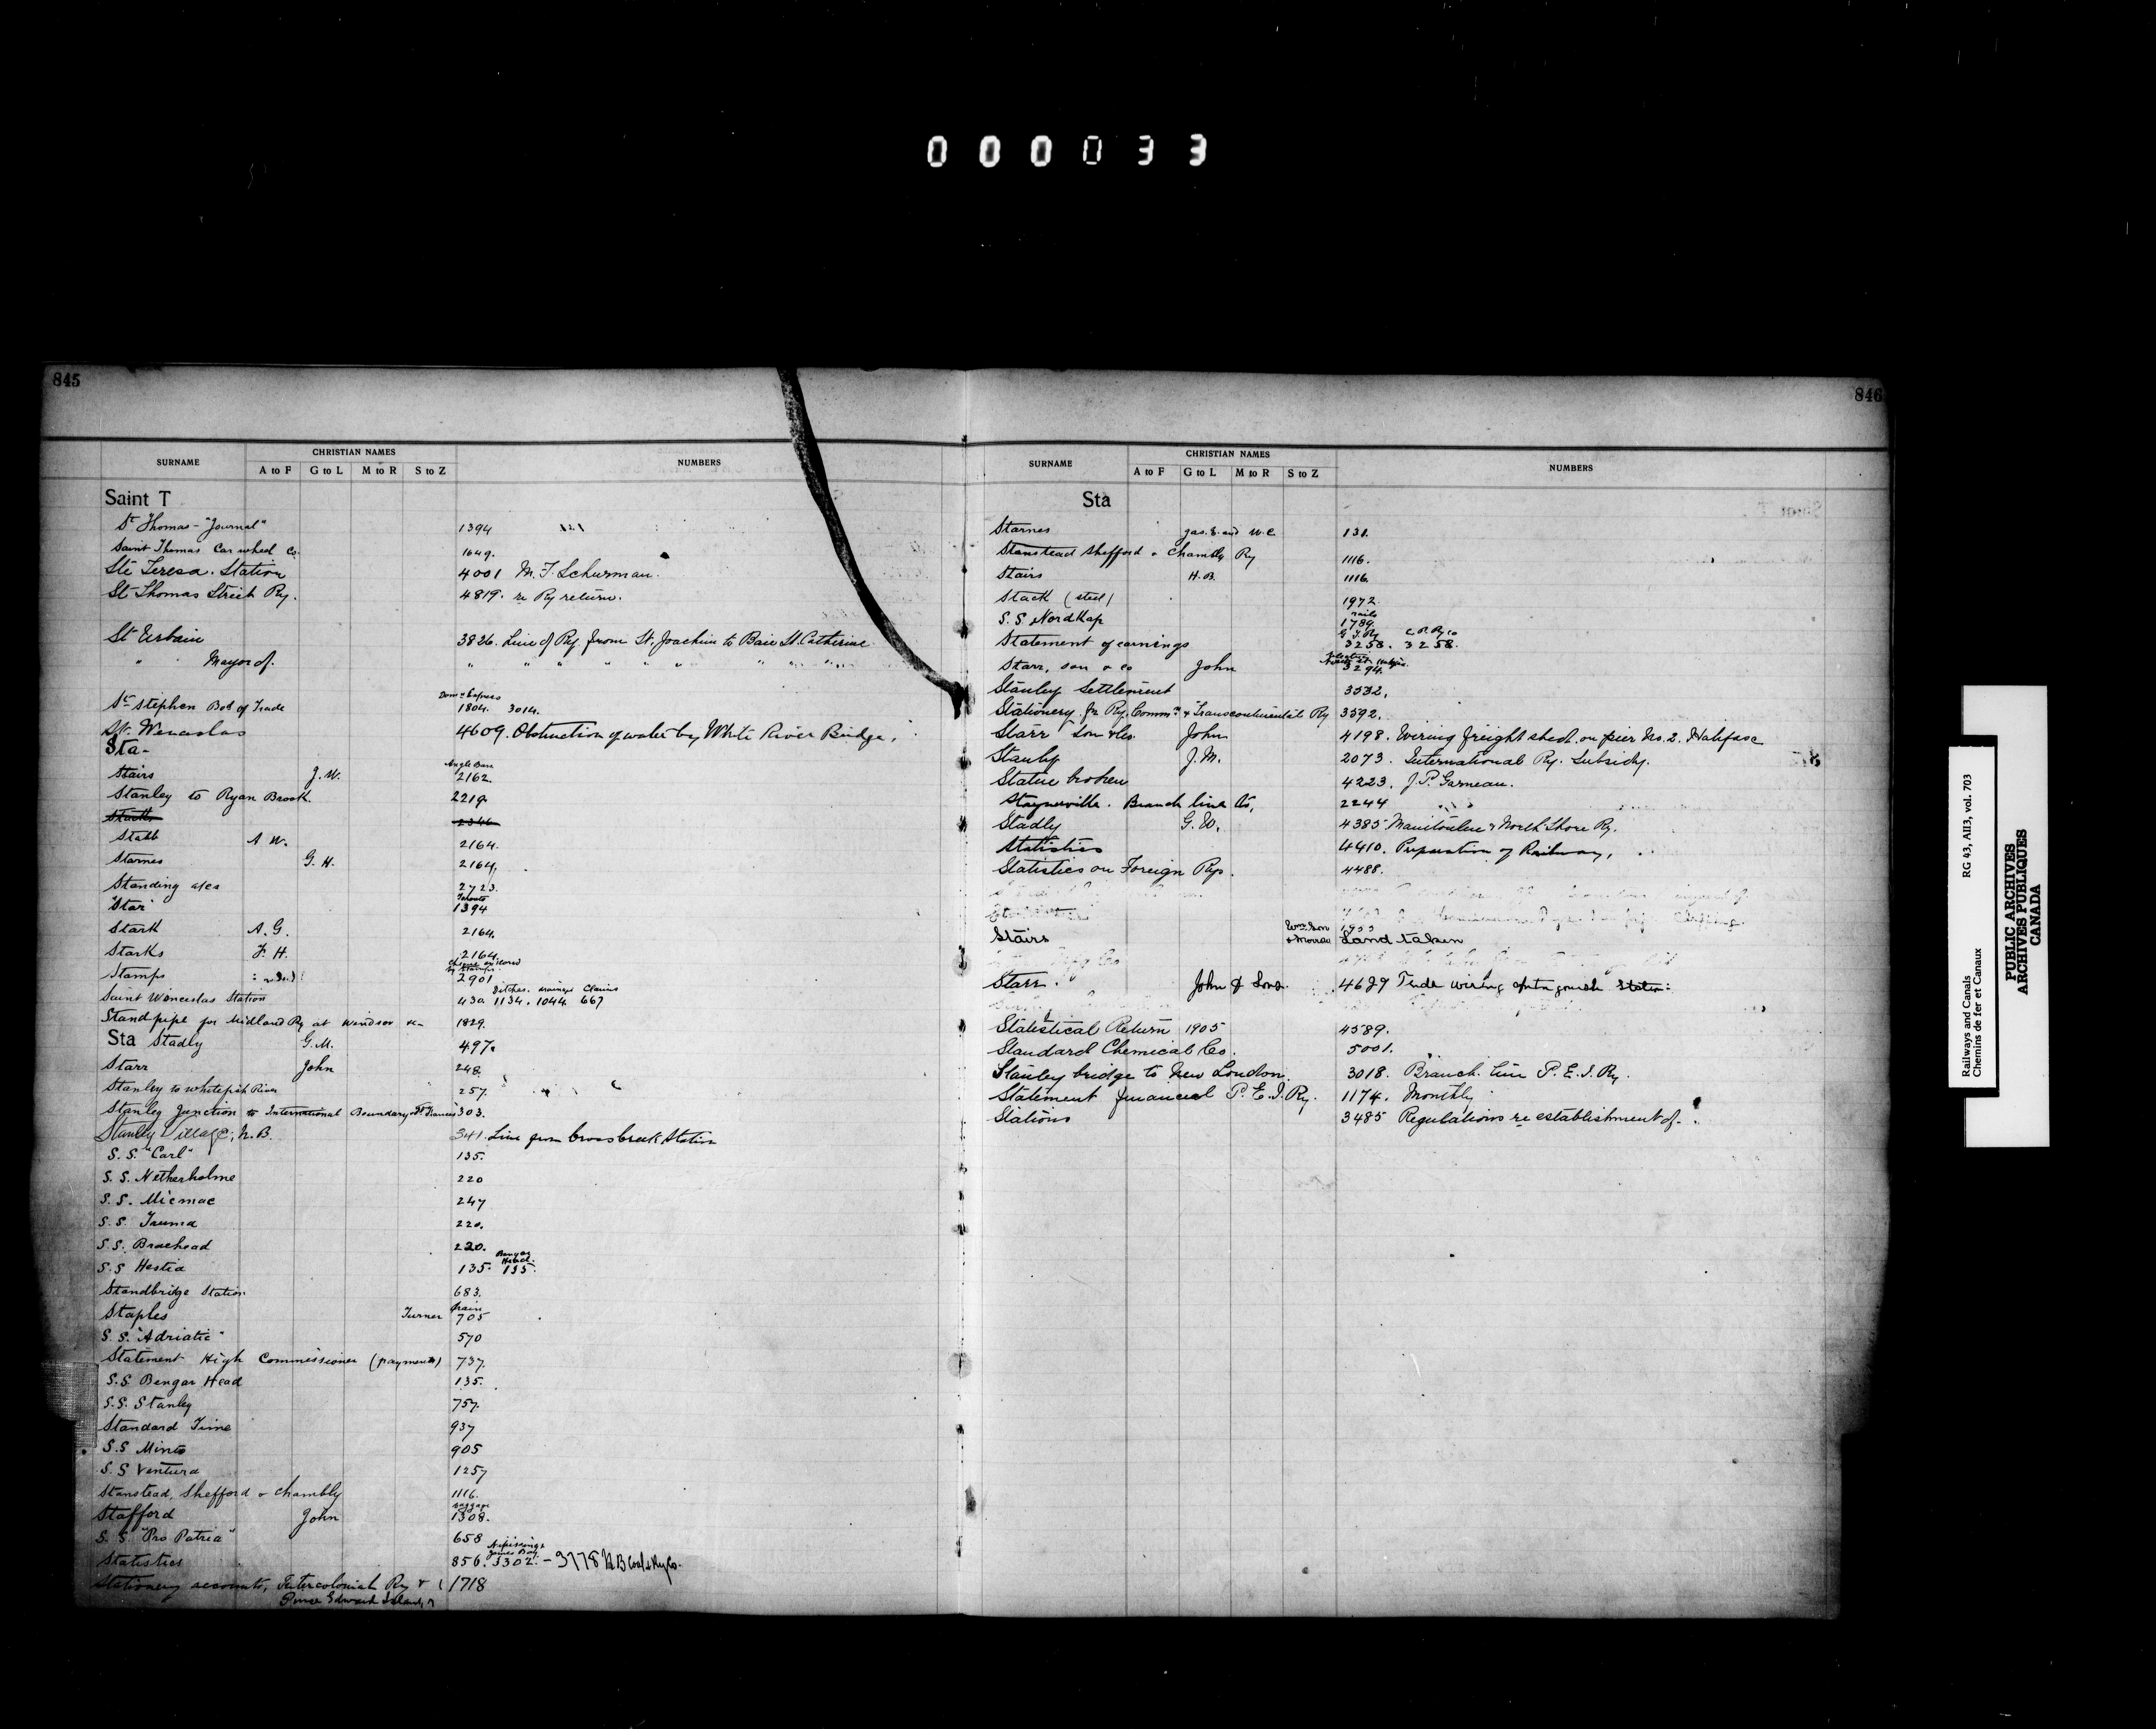 000033
845
SURNAME CHRISTIAN NAMES NUMBERS
A to F G to L M to R S to Z
Saint T
St Thomas - "Journal" 1394
Saint Thomas Car wheel Co. 1649.
Ste Teresa. Station 4001 M. F. Schurman.
St Thomas Street Ry. 4819. re Ry return.
St Urbain 3826. Line of Ry from St. Joachim to Baie St. Catherine
" Mayor of. " " " " " " " "
Domn Express
St Stephen Bd of Trade 1804. 3014.
St. Wenceslas 4609. Obstruction of water by White River Bridge.
Sta-
Angle Bars
Stairs J. W. 2162.
Stanley to Ryan Brook. 2219.
2346
Stabb A W. 2164.
Starnes G. H. 2164.
Standing a/cs 2723.
Toronto
"Star" 1394
Stark A. G. 2164.
Starks F. H. 2164.
Stamps 2901
Ditches. drainage Claims
Saint Wenceslas Station 430 1134. 1044. 667
Stand pipe for Midland Ry at Windsor 1829.
Sta Stadly G. M. 497.
Starr John 248.
Stanley to Whitefish River 257.
Stanley Junction to International Boundary St. Francis 303.
Stanley Village, N. B. 341. Line from Cross Creek Station
S. S. "Carl" 135.
S. S. Netherholme 220
S. S. Micmac 247
S. S. Truma 220.
S. S. Braehead 220.
Bengar Head.
S. S Hestia 135. 135.
Standbridge Station 683.
drain
Staples Turner 705
S. S. "Adriatic" 570
Statement High Commissioner (payments) 737.
S. S. Bengar Head 135.
S. S. Stanley 757.
Standard Time 937
S. S Minto 905
S. S Ventura 1257
Stanstead, Shefford & Chambly 1116.
Stafford John 1308.
S. S. "Pro Patria" 658
Nipissing &
James Bay
Statistics 856. 3302. - 3778 N B Coal & Ry Co.
Stationery accounts, Intercolonial Ry & 1718
Prince Edward Island
846
SURNAME CHRISTIAN NAMES NUMBERS
A to F G to L M to R S to Z
Sta
Starnes Jas. S. and W. C. 131.
Stanstead Shefford & Chambly Ry 1116.
Stairs H. B. 1116.
Stack (steel) 1972.
rails
S. S Nordkap 1789.
G T Ry C. P. Ry Co
Statement of earnings 3258. 3258.
Starr, son & co John 3294.
Stanley Settlement 3532.
Stationery for Ry. Commn & Transcontinental Ry 3592.
Starr Son & Co. John 4198. Wiring freight shed on pier No. 2. Halifax
Stanly J. M. 2073. International Ry. Subsidy.
Statue broken 4223. J. P. Garneau.
Staynerville. Branch line to, 2244
Stadly G. W. 4385 Manitoulin & North Shore Ry.
Statistics 4410. Preparation of Railway.
Statistics on Foreign Rys. 4488.
Stairs Wm. Son & Morrow 1933 Land taken
Starr. John & Sons. 4629 Tender wiring Antigonish Station.
Statistical Return 1905 4589.
Standard Chemical Co. 5001.
Stanley bridge to New London. 3018. Branch line P. E. I. Ry.
Statement financial P. E. I. Ry. 1174. Monthly
Stations 3485 Regulations re establishment of.
Railways and Canals RG 43, AII3, vol. 703
Chemins de fer et Canaux
PUBLIC ARCHIVES
ARCHIVES PUBLIQUES
CANADA